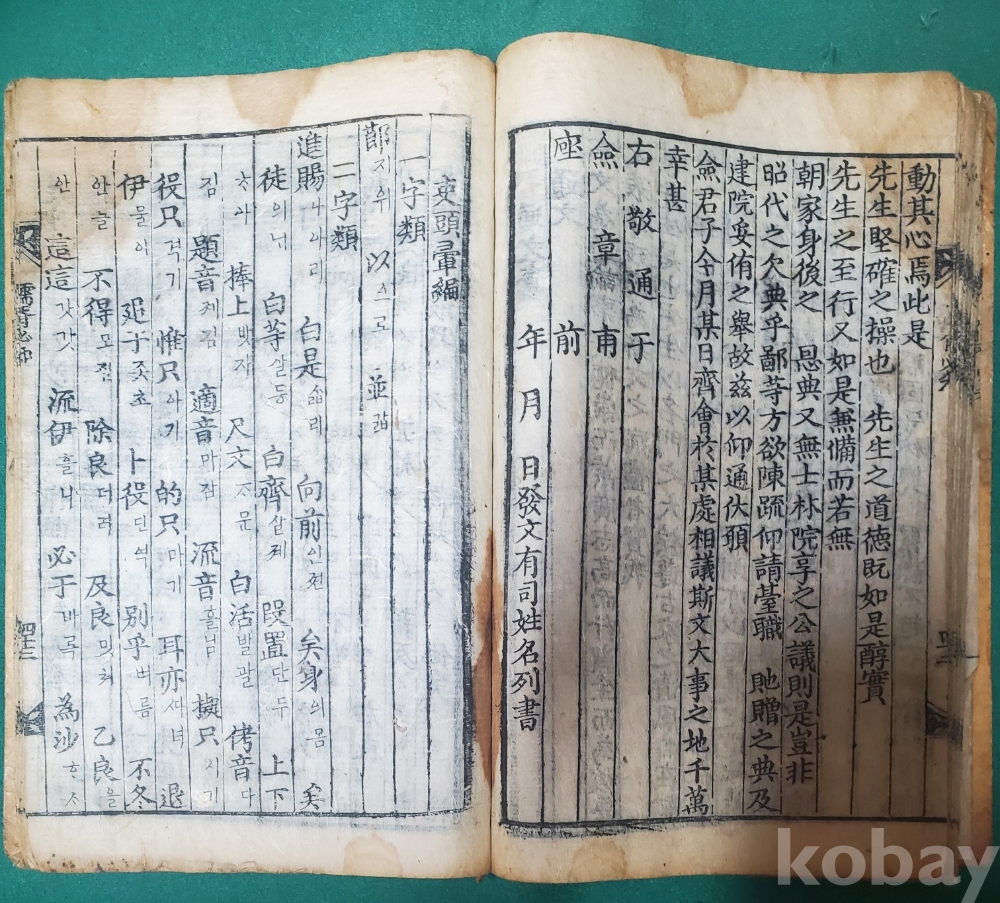 動其心焉此是
先生堅確之操也 先生之道德既如是醇實
先生之至行又如是無備而若無
朝家身後之 恩典又無士林院享之公議則是豈非
昭代之欠典乎鄙等方欲陳疏仰請臺職 貤贈之典及
建院妥侑之舉故玆以仰通伏願
僉君子今月某日齊會於某處相議斯文大事之地千萬
幸甚
右敬通于
僉章甫
座前
年 月 日發文有司姓名列書
吏頭彙編
一字類
지위 以으로 並
二字類
進賜나아리 白是 向前안젼 矣身의몸 矣
徒의닉 白等살등 白齊살졔 段置단두 上下
ᄎᆞ하 捧上밧자 尺文자문 白活발괄 侤音다
짐 題音제김 適音마감 流音흘님 擬只시기
役只격기 惟只아기 的只마기 耳亦 退
伊물이 卜役딘역 別乎벼름 不冬
안들 不得모질 除良더러 及良밋쳐 乙良을
안 這這갓갓 流伊흘니 必于개록 為沙
儒胥必知
kobay